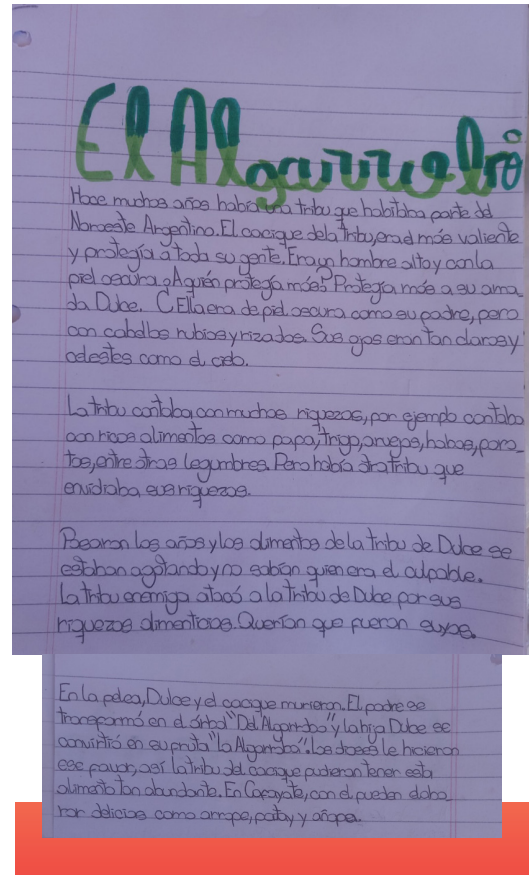 El Algarrobo
Hace muchos años había una tribu que habitaba parte del
Noroeste Argentino. El cacique dela tribu, era el más valiente
y protegía a toda su gente. Era un hombre alto y con la
piel oscura. ¿A quién protegía más? Protegía más a su ama-
da Dulce. Ella era de piel oscura como su padre, pero
con cabellos rubios y rizados. Sus ojos eran tan claros y
celestes como el cielo.
La tribu contaba con muchas riquezas, por ejemplo contaba
con ricos alimentos como papa, trigo, arvejas, habas, poro-
tos, entre otras legumbres. Pero había otra tribu que
envidiaba sus riquezas.
Pasaron los años y los alimentos de la tribu de Dulce se
estaban agotando y no sabían quien era el culpable.
La tribu enemiga atacó a la tribu de Dulce por sus
riquezas alimenticias. Querían que fueran suyas.
En la pelea, Dulce y el cacique murieron. El padre se
transformó en el árbol "Del Algarrobo" y la hija Dulce se
convirtió en su fruta "la Algarroba". Los dioses le hicieron
ese favor, así la tribu del cacique pudieran tener este
alimento tan abundante. En Cafayate, con el pueden elabo-
rar delicias como arrope, patay y añapa.